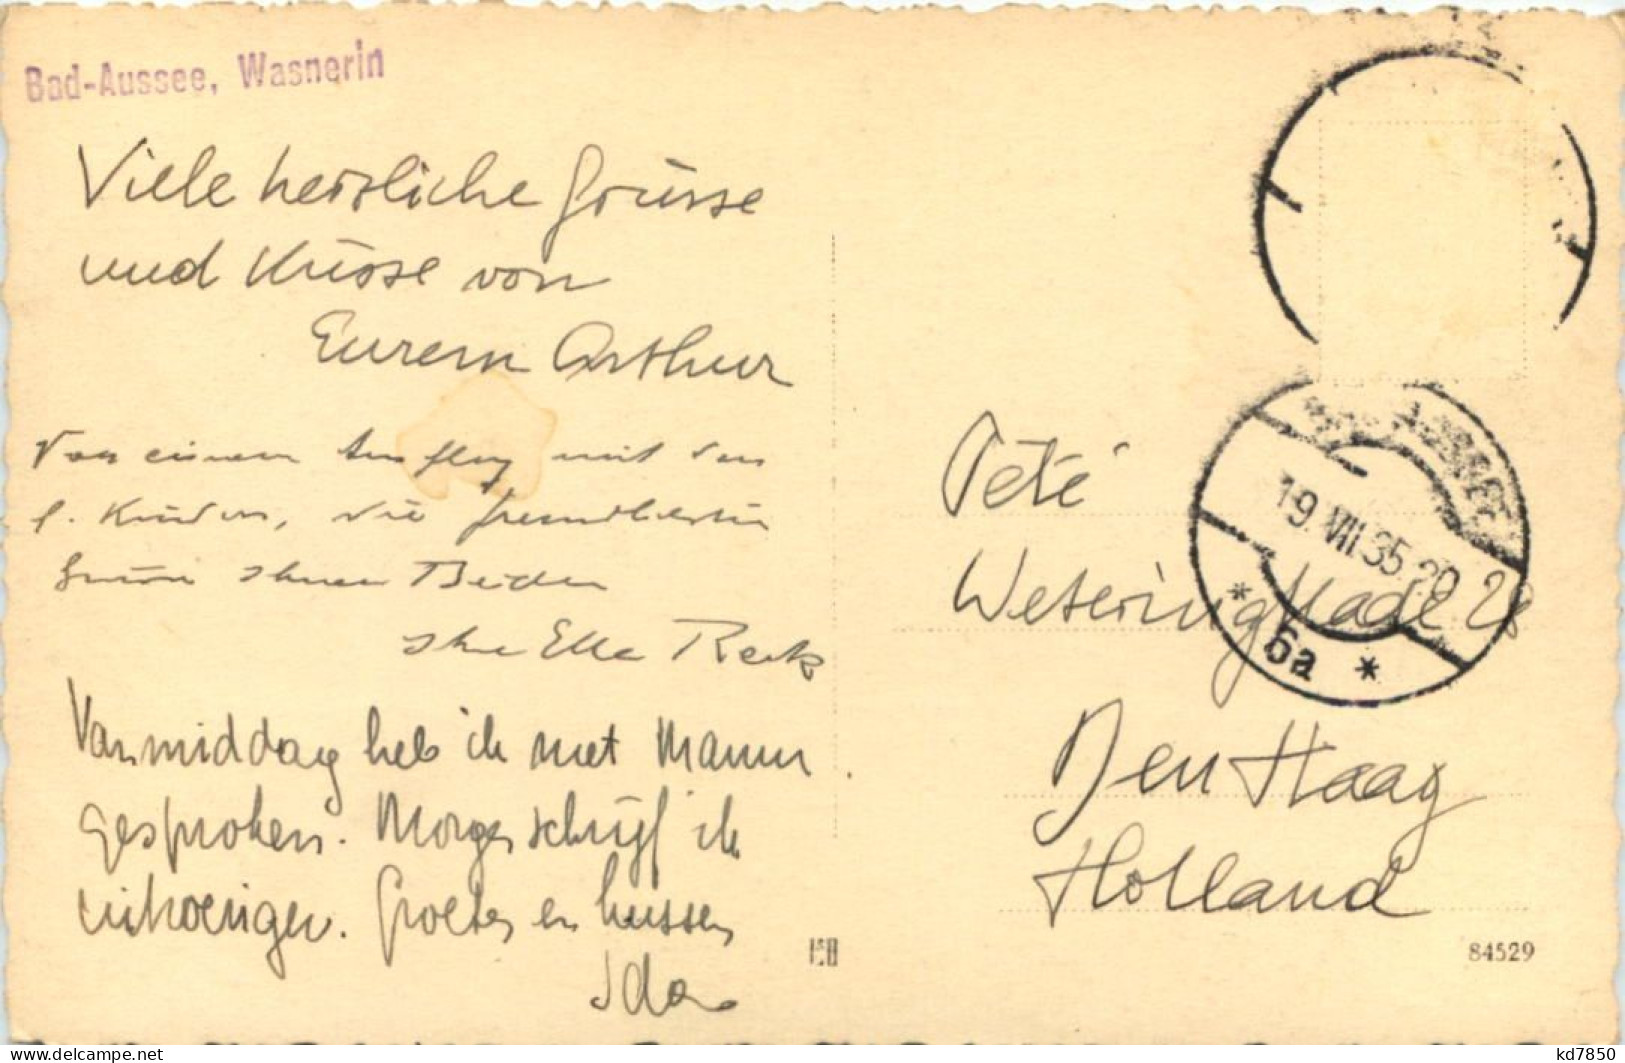 Bad-Aussee, Wasnerin
Viele herzliche Grüsse
und Küsse von
Eurem Arthur
Von einem Ausflug mit den
l. Kindern, die freundlichsten
Grüsse Ihnen Beiden
Ihre Ella
Vanmiddag heb ik met Mamm
gesproken. Morgen schrijf ik
uitvoeriger. Groeten en kussen
Ida
Peté
Weteringkade 28
Den Haag
Holland
19. VII. 35. 20
* 6a *
84529
kd7850